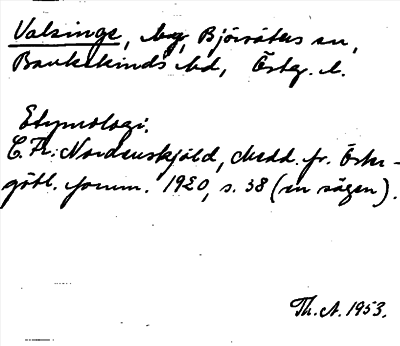 Valsinge, by, Björsäters sn,
Bankekinds hd, Östg. l.
Etymologi.
C. Fr. Nordenskjöld, Medd. fr. Öster-
götl. fornm. 1920, s. 38 (en sägen).
Th. A. 1953.